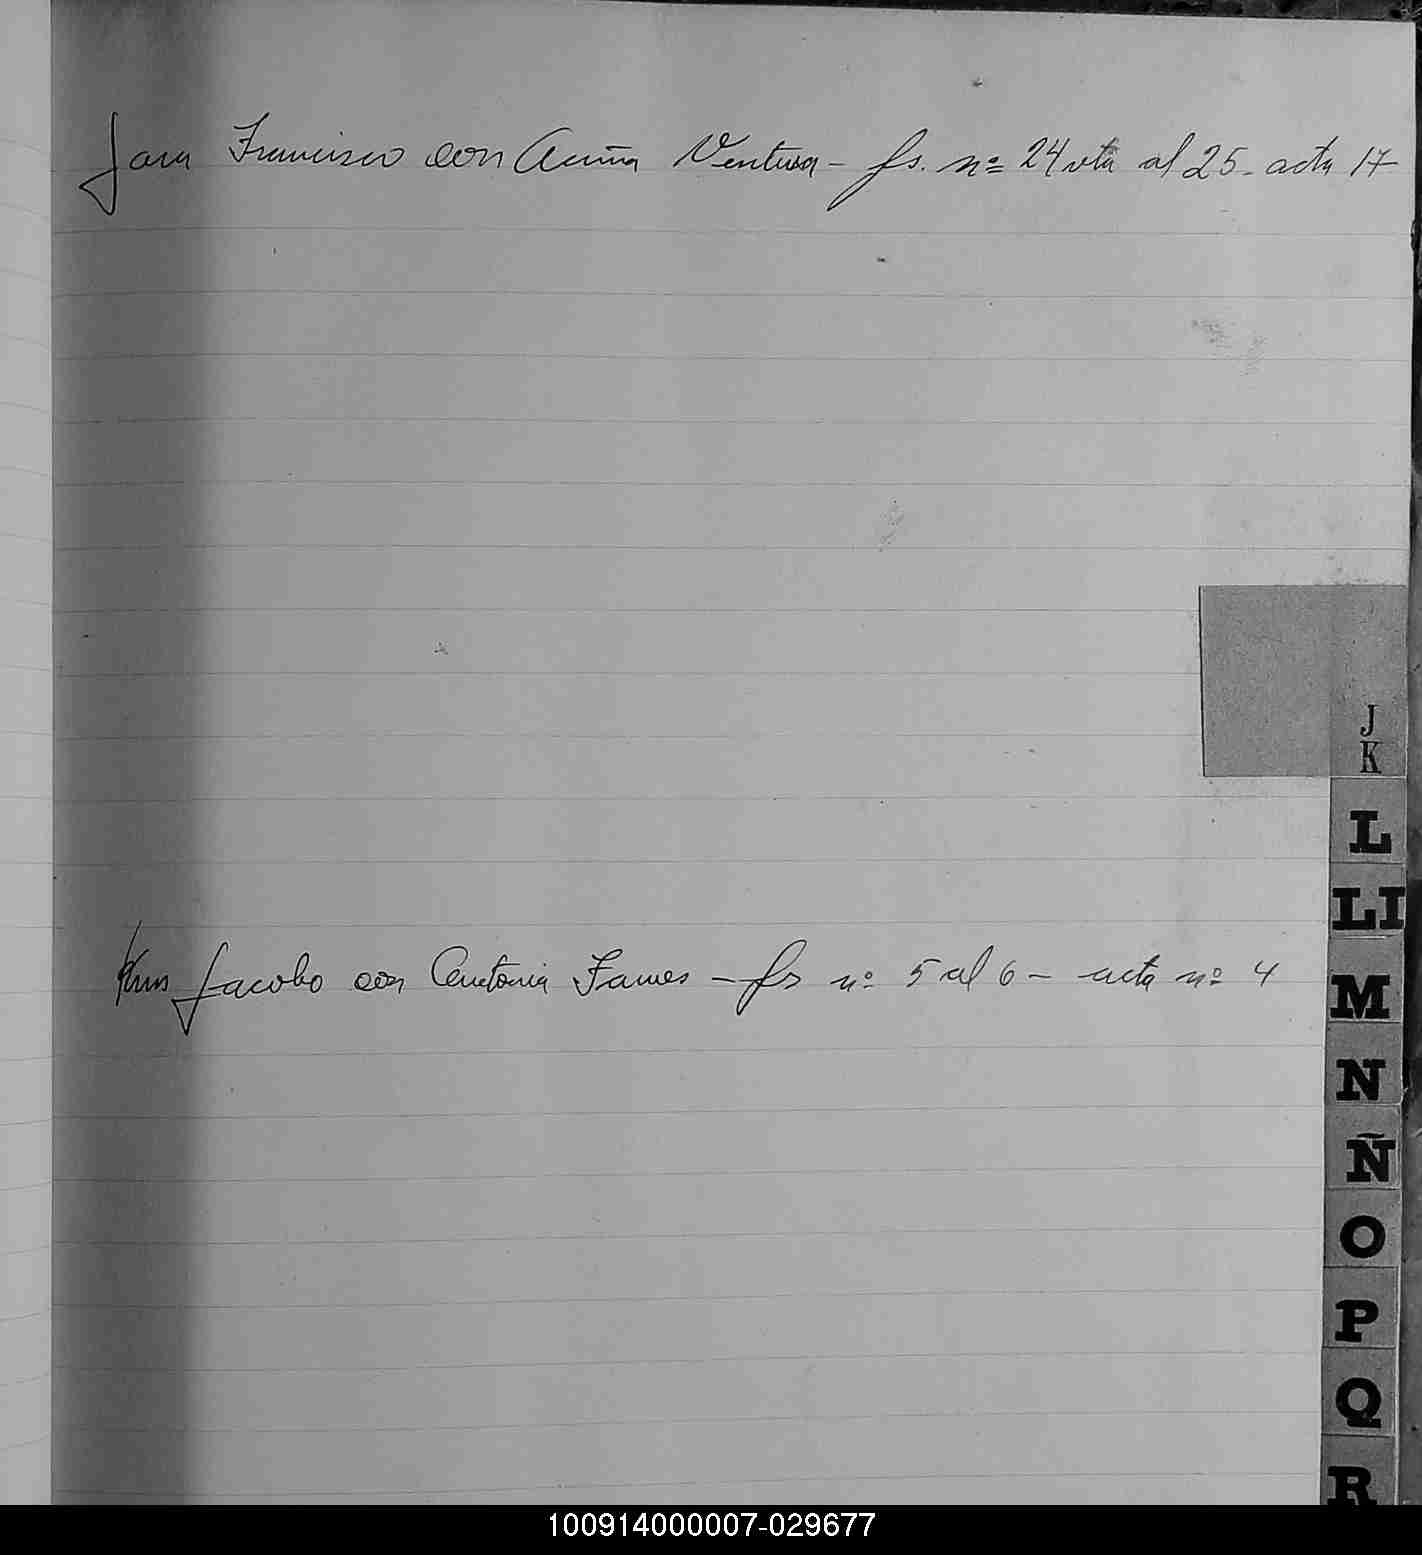 Jara Francisco con Acuña Ventura - fs. nº 24 vta al 25 - acta 17
J
K
L
LI
M
Jacobo con Antonia Fames - fs nº 5 al 6 - acta nº 4
N
Ñ
O
P
Q
R
100914000007-029677